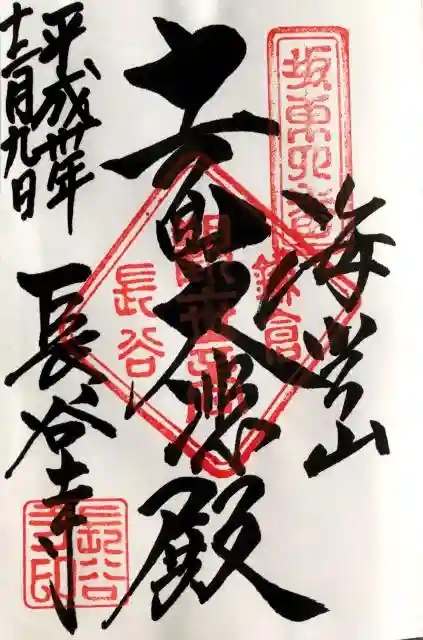 坂東四番
海光山
鎌倉
十一面大悲殿
長谷
平成卅年
十二月九日
長谷寺
長谷寺印